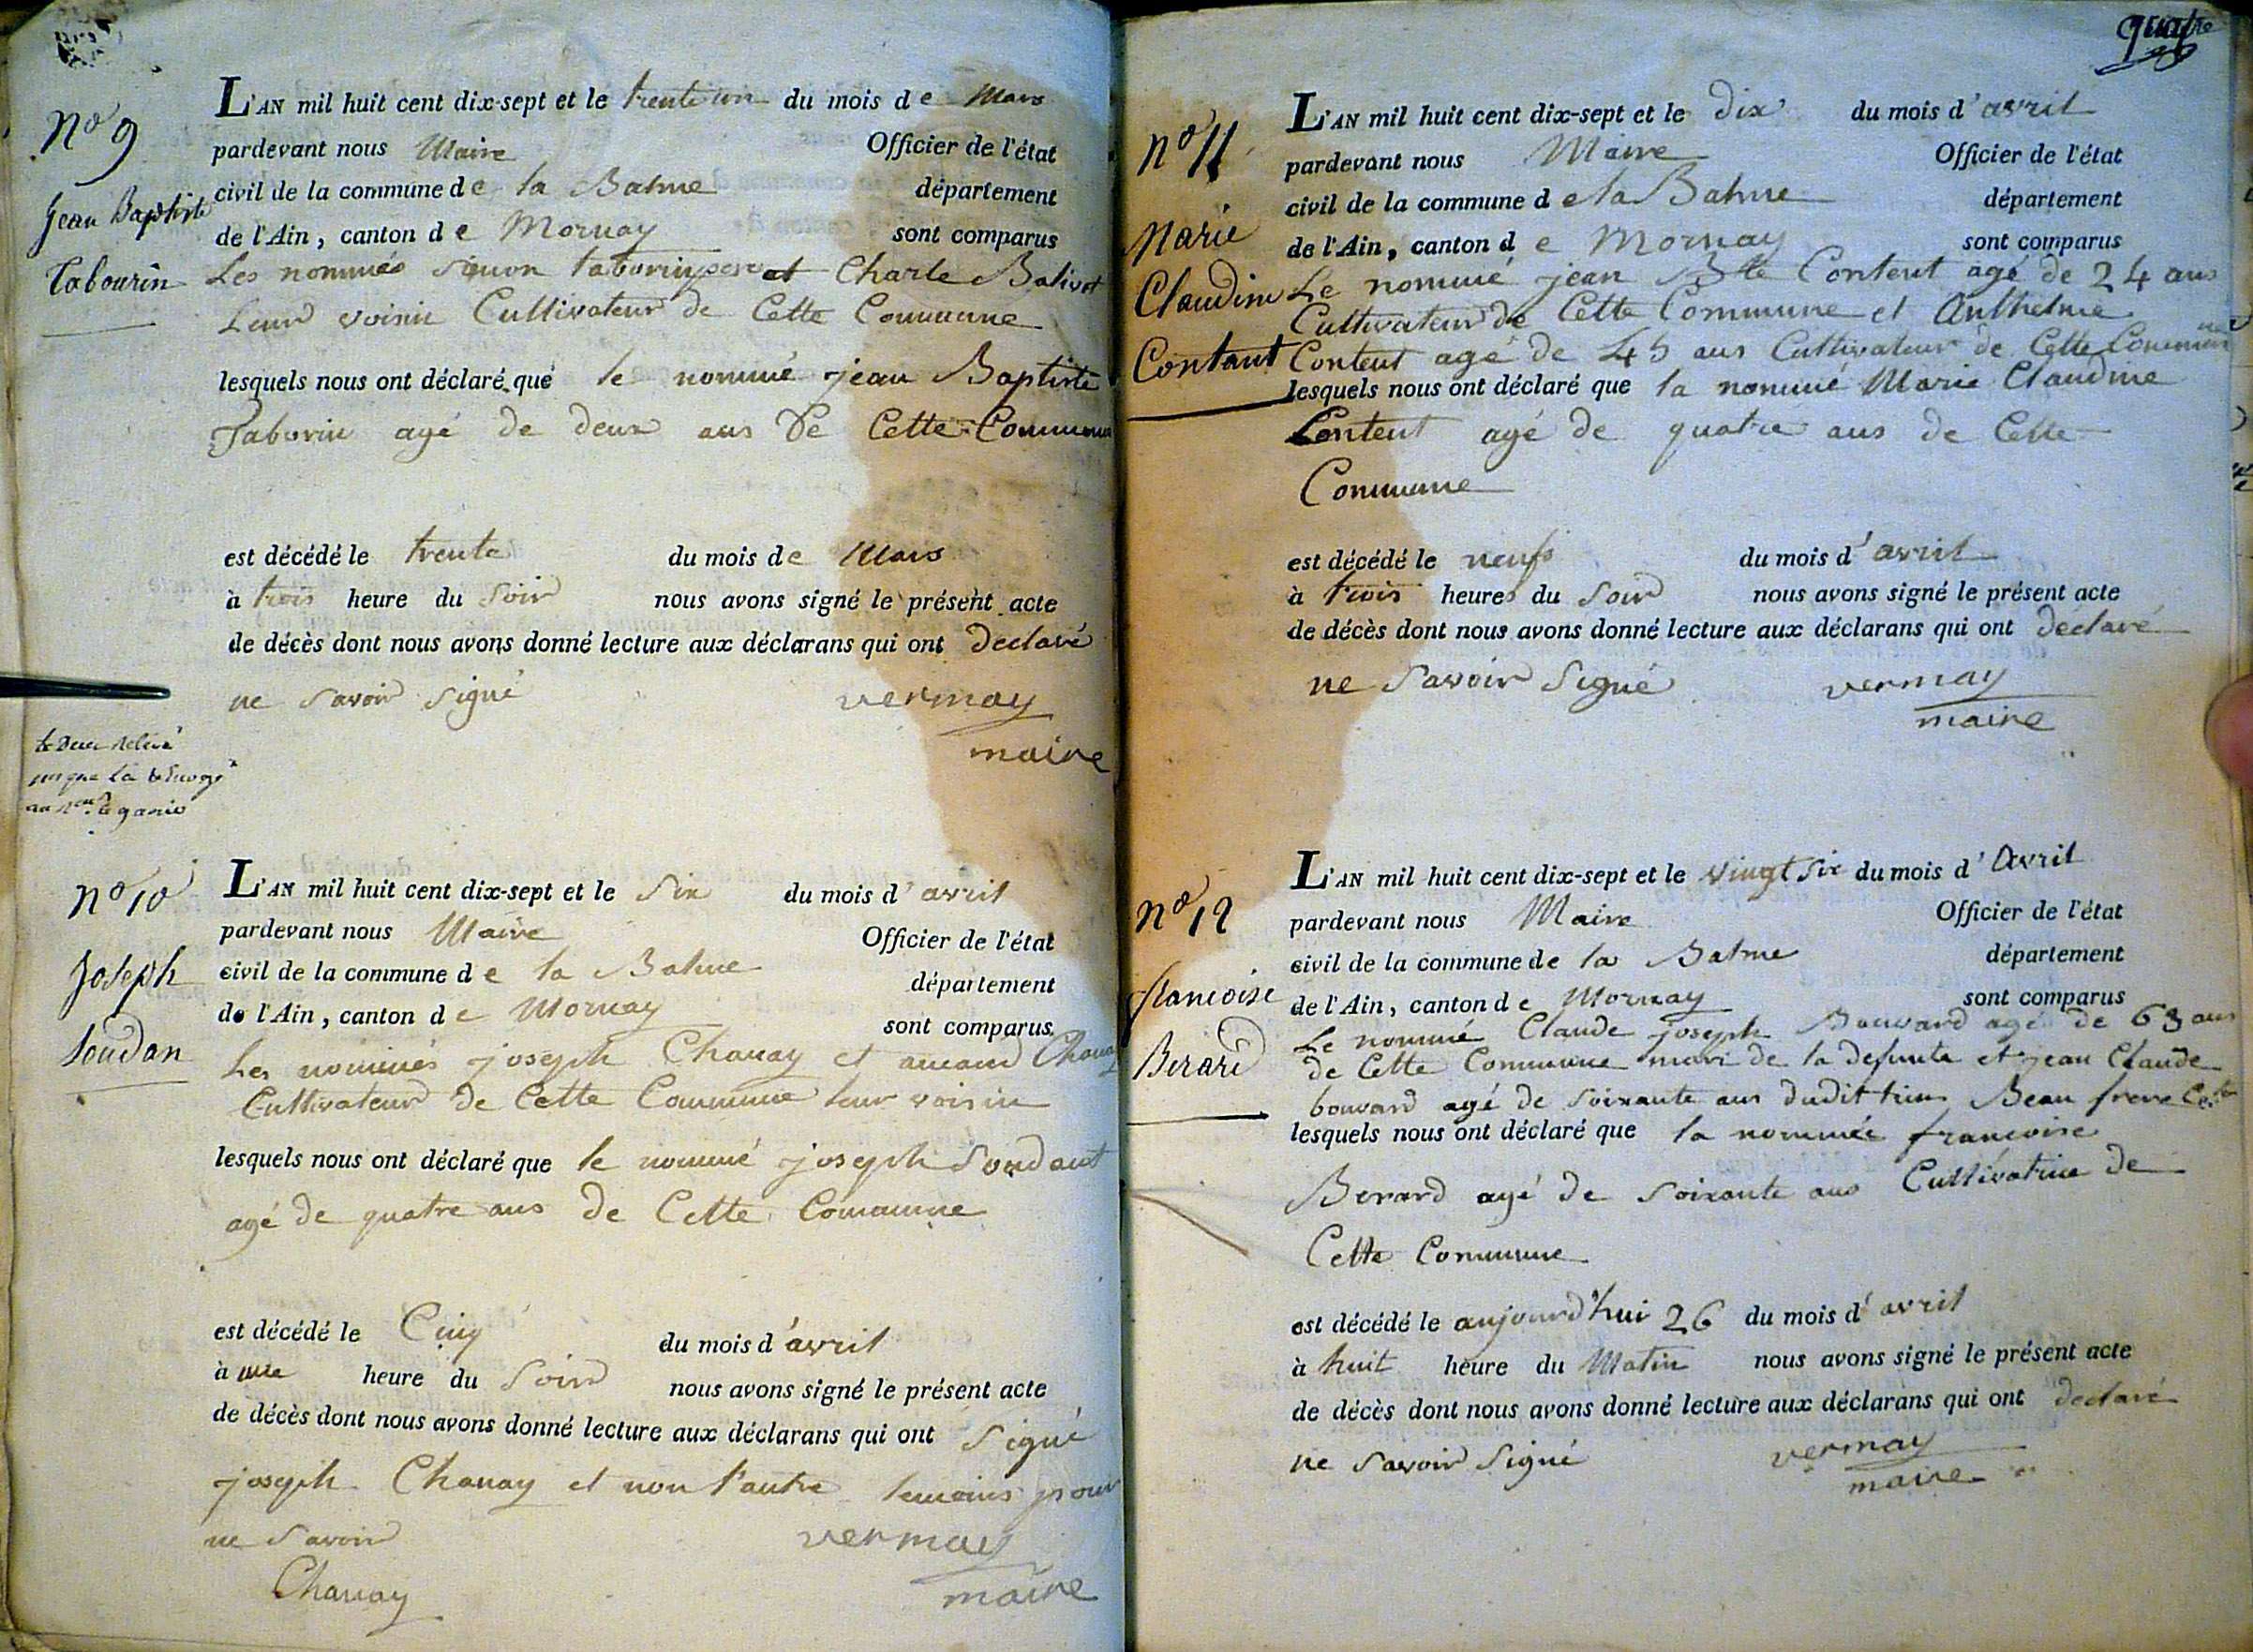 N° 9
Jean Baptiste
Tabourin
L'AN mil huit cent dix-sept et le trente un du mois de Mars
pardevant nous Maire Officier de l'état
civil de la commune de la Balme département
de l'Ain, canton de Mornay sont comparus
Les nommés Simon taborin pere et Charle Balivet
Leur voisin Cultivateur de Cette Commune
lesquels nous ont déclaré que le nommé jean Baptiste
Taborin agé de deux ans De Cette Commune
est décédé le trente du mois de Mars
à trois heure du Soir nous avons signé le présent acte
de décès dont nous avons donné lecture aux déclarans qui ont declaré
ne Savoir Signé vermay
maire
N° 10
Joseph
Soudan
L'AN mil huit cent dix-sept et le Six du mois d'avril
pardevant nous Maire Officier de l'état
civil de la commune de la Balme département
de l'Ain, canton de Mornay sont comparus
Les nommés joseph Chanay et amand Chanay
Cultivateur de Cette Commune leur voisin
lesquels nous ont déclaré que le nommé joseph Soudant
agé de quatre ans de Cette Commune
est décédé le Cinq du mois d'avril
à une heure du Soir nous avons signé le présent acte
de décès dont nous avons donné lecture aux déclarans qui ont Signé
joseph Chanay et non l'autre temoins pour
ne Savoir vermay
Chanay maire
quatre
N° 11
Marie
Claudine
Contant
L'AN mil huit cent dix-sept et le dix du mois d'avril
pardevant nous Maire Officier de l'état
civil de la commune de la Balme département
de l'Ain, canton de Mornay sont comparus
Le nommé jean Bte Content agé de 24 ans
Cultivateur de Cette Commune et Anthelme
Content agé de 45 ans Cultivateur de Cette Commune
lesquels nous ont déclaré que la nommé Marie Claudine
Content agé de quatre ans de Cette
Commune
est décédé le neuf du mois d'avril
à trois heures du Soir nous avons signé le présent acte
de décès dont nous avons donné lecture aux déclarans qui ont declaré
ne Savoir Signé vermay
maire
N° 12
francoise
Berard
L'AN mil huit cent dix-sept et le vingt Six du mois d'Avril
pardevant nous Maire Officier de l'état
civil de la commune de la Balme département
de l'Ain, canton de Mornay sont comparus
Le nommé Claude joseph Bouvard agé de 63 ans
de Cette Commune mari de la defunte et jean Claude
bouvard agé de Soixante ans dudit lieu Beau frere
lesquels nous ont déclaré que la nommée francoise
Berard agé de Soixante ans Cultivatrice de
Cette Commune
est décédé le aujourd'hui 26 du mois d'avril
à huit heure du Matin nous avons signé le présent acte
de décès dont nous avons donné lecture aux déclarans qui ont declaré
ne Savoir Signé vermay
maire